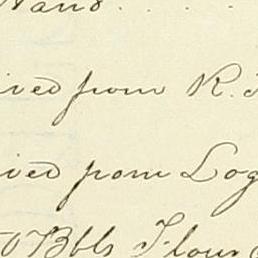 Hand . . . .
ived from R.
ived from Log
0 Bbls Flour